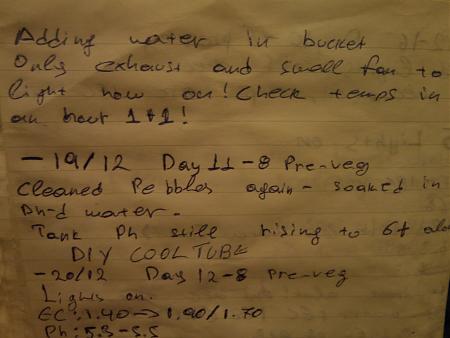 Adding water in bucket
Only exhaust and small fan to
light now on! Check temps in
an hour 1+1!
- 19/12 Day 11-8 Pre-veg
Cleaned Pebbles again - soaked in
Ph-d water.
Tank Ph still rising to 6+
DIY COOLTUBE
- 20/12 Day 12-8 pre-veg
Lights on.
EC: 1.40 -> 1.90/1.70
Ph: 5.3-5.5